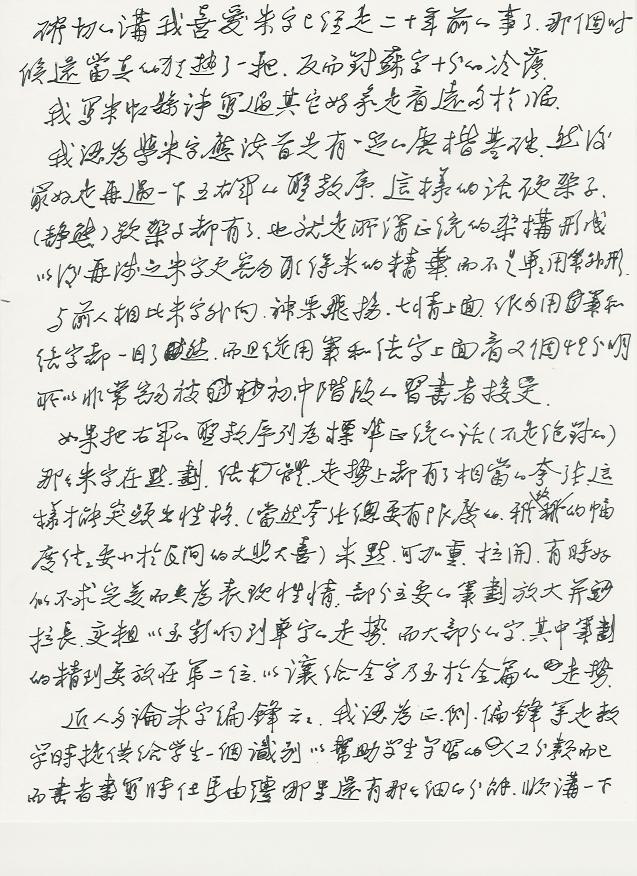 確切的講我喜愛米字已經是二十年前的事了.那個时
候還當真的狂热了一把.反而對蘇字十分的冷落.
我写米虹縣诗写過其它好象是看遠多於临.
我認為學米字應该首先有一定的唐楷基础.然後
最好是再過一下王右军的聖教序.這樣的话硬架子.
(静態)软架子都有了.也就是所謂正統的架構形成
以後再涉之米字更容易取得米的精華而不是單用筆外形.
与前人相比米字外向.神采飛揚.七情上面.很多用筆和
结字都一目了然.而且從用筆和结字上面看又個性分明
所以非常容易被初.中階段的習書者接受.
如果把右军的聖教序列為標準正統的话(不是绝對的)
那麼米字在點.劃.结体.走勢上都有了相當的夸张這
樣才能突顕出性格.(當然夸张總要有限度的.的幅
度往往要小於民间的大悲大喜)米點.可加重.拉開.有時好
似不求完美而只為表现性情.部分主要的筆劃放大并
拉長.变粗以至影响到單字的走勢.而大部分的字.其中筆劃
的精到要放在第二位.以讓给全字乃至於全篇的走勢.
近人多論米字偏鋒云云.我認為正.侧.偏鋒等是教
学時提供给学生一個識别以幫助学生学習的人工分類而已
而書者書写時任馬由韁那里還有那麼细的分解.順講一下